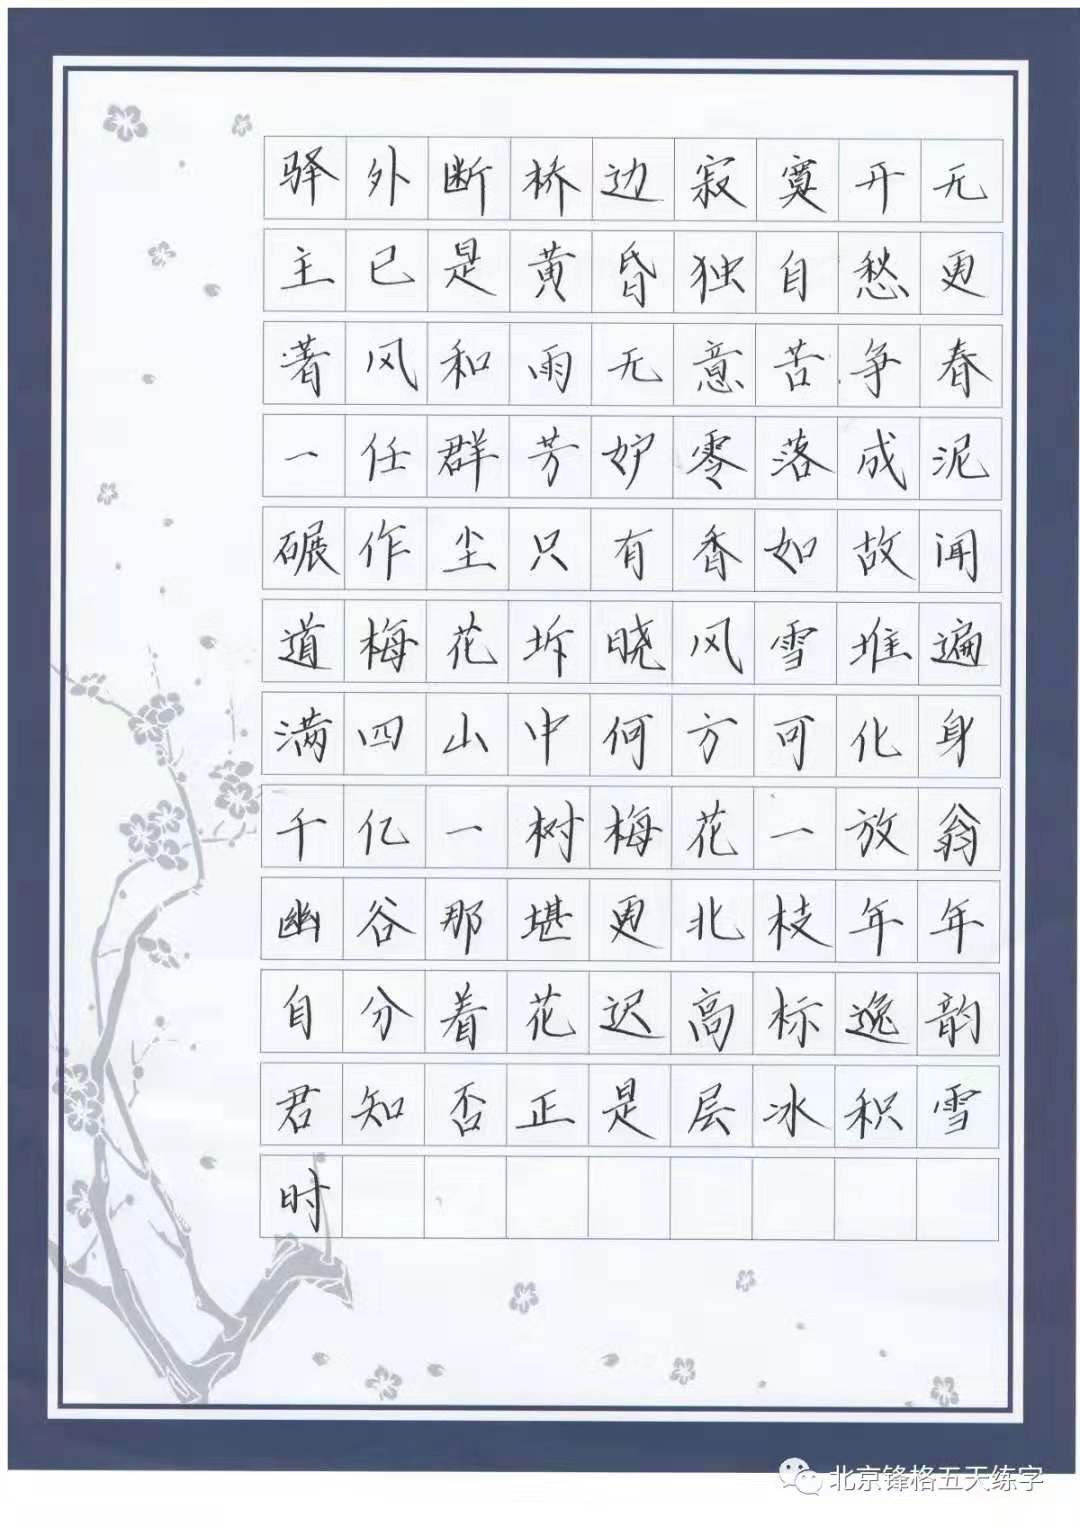 驿外断桥边寂寞开无
主已是黄昏独自愁更
著风和雨无意苦争春
一任群芳妒零落成泥
碾作尘只有香如故闻
道梅花坼晓风雪堆遍
满四山中何方可化身
千亿一树梅花一放翁
幽谷那堪更北枝年年
自分着花迟高标逸韵
君知否正是层冰积雪
时
北京锋格五天练字